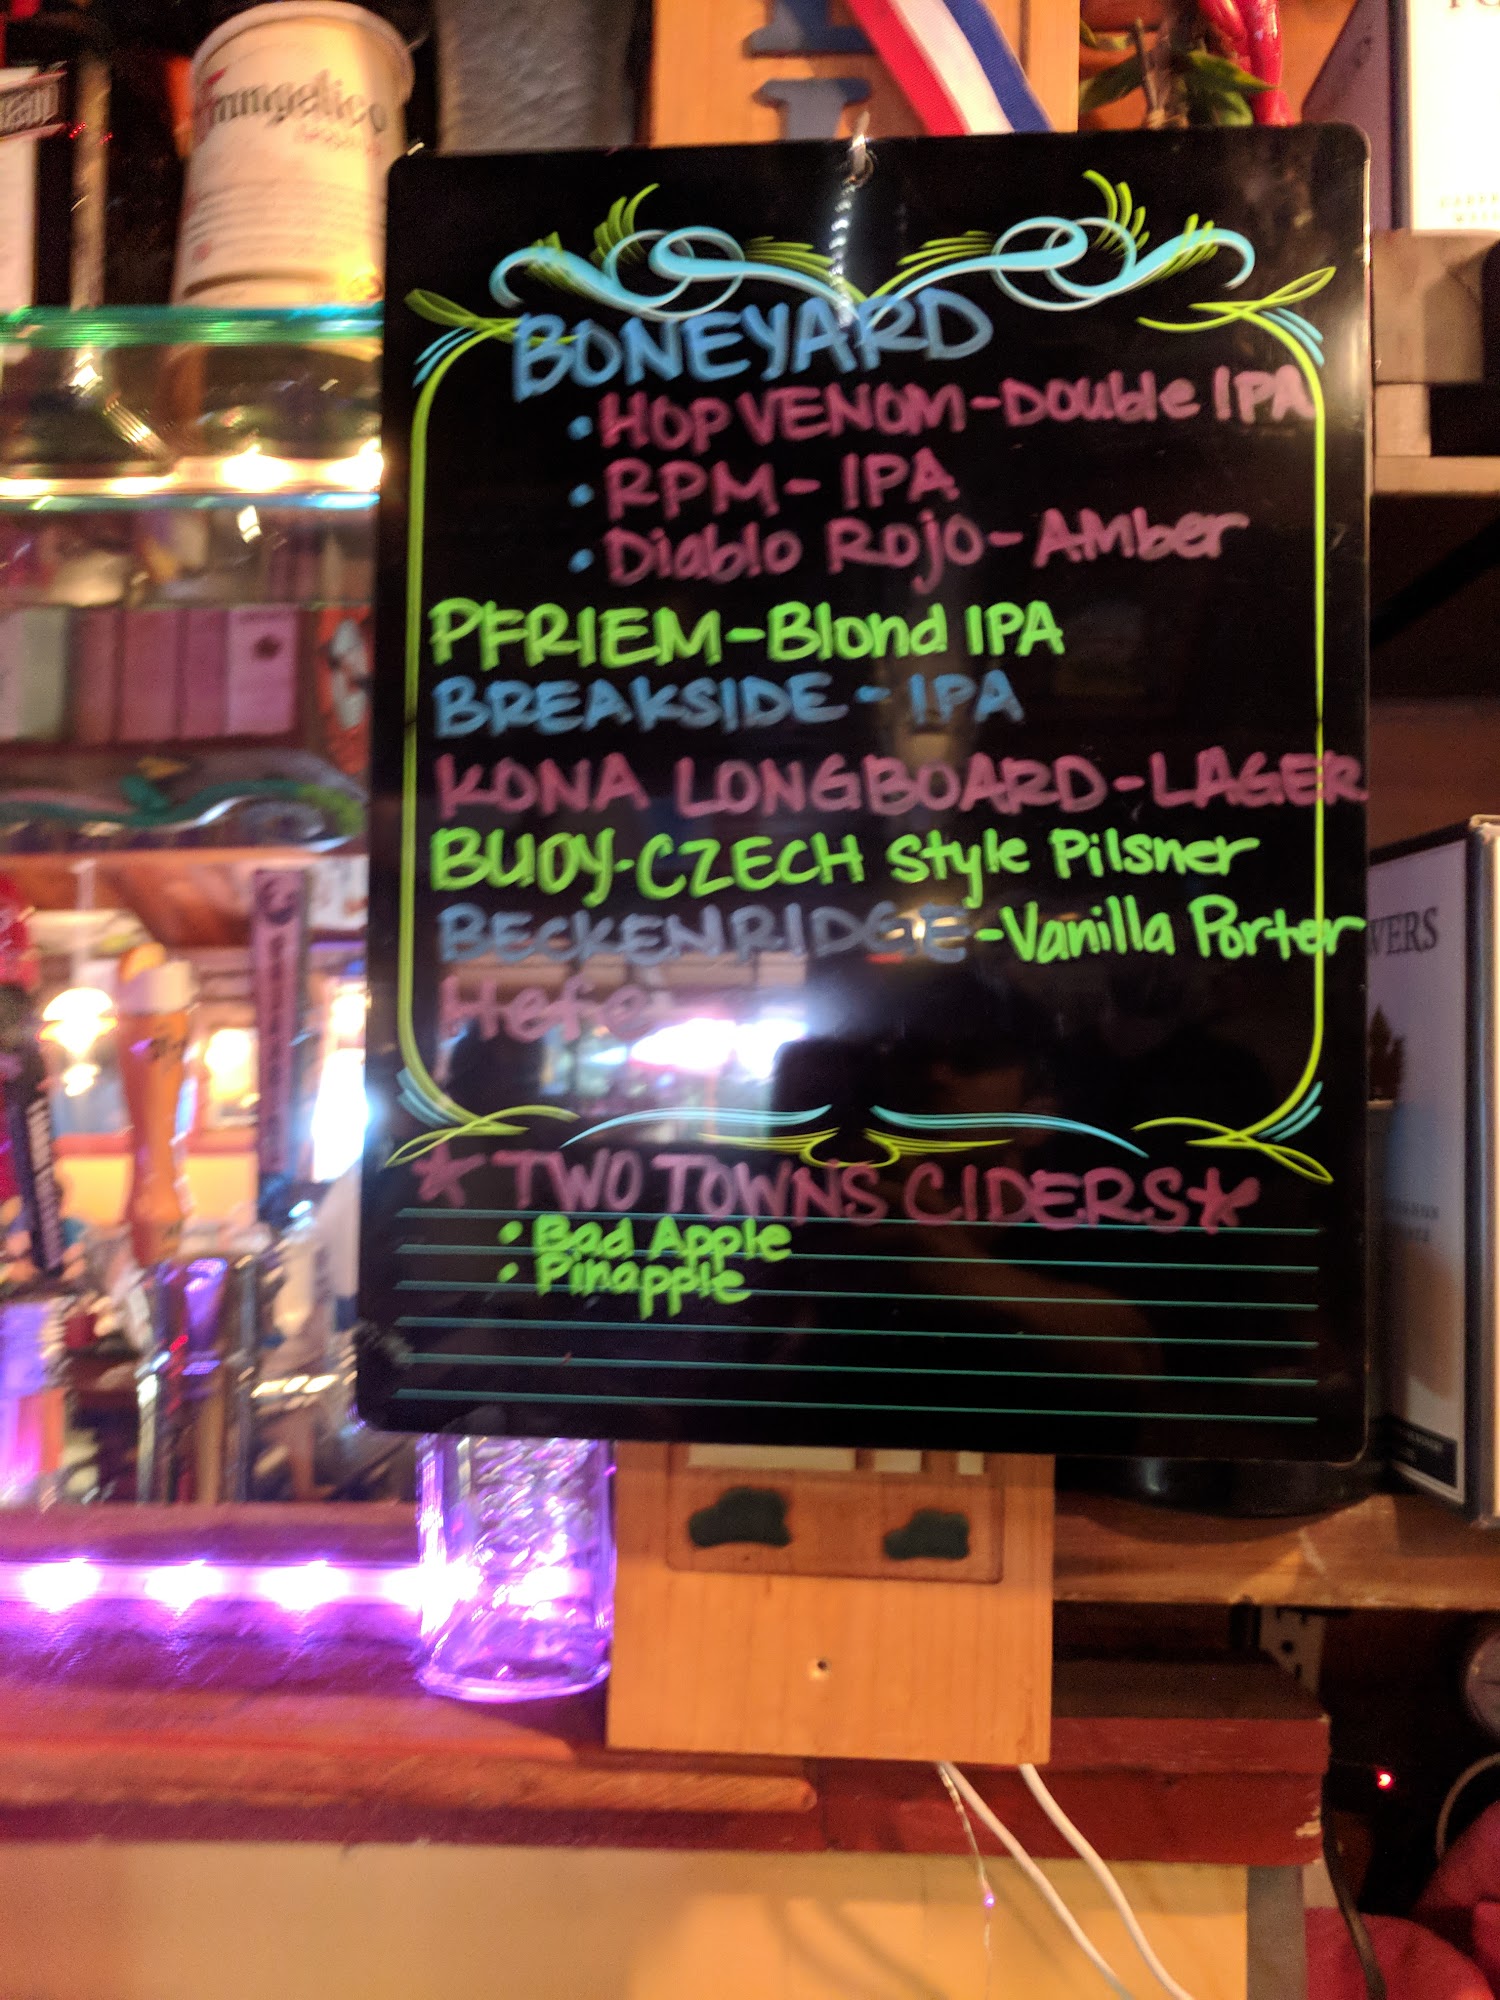 Frangelico
BONEYARD
• HOP VENOM - Double IPA
• RPM - IPA
• Diablo Rojo - AMber
PFRIEM - Blond IPA
BREAKSIDE - IPA
KONA LONGBOARD - LAGER
BUOY - CZECH Style Pilsner
BECKENRIDGE - Vanilla Porter
Hefe
* TWO TOWNS CIDERS *
• Bad Apple
• Pinapple